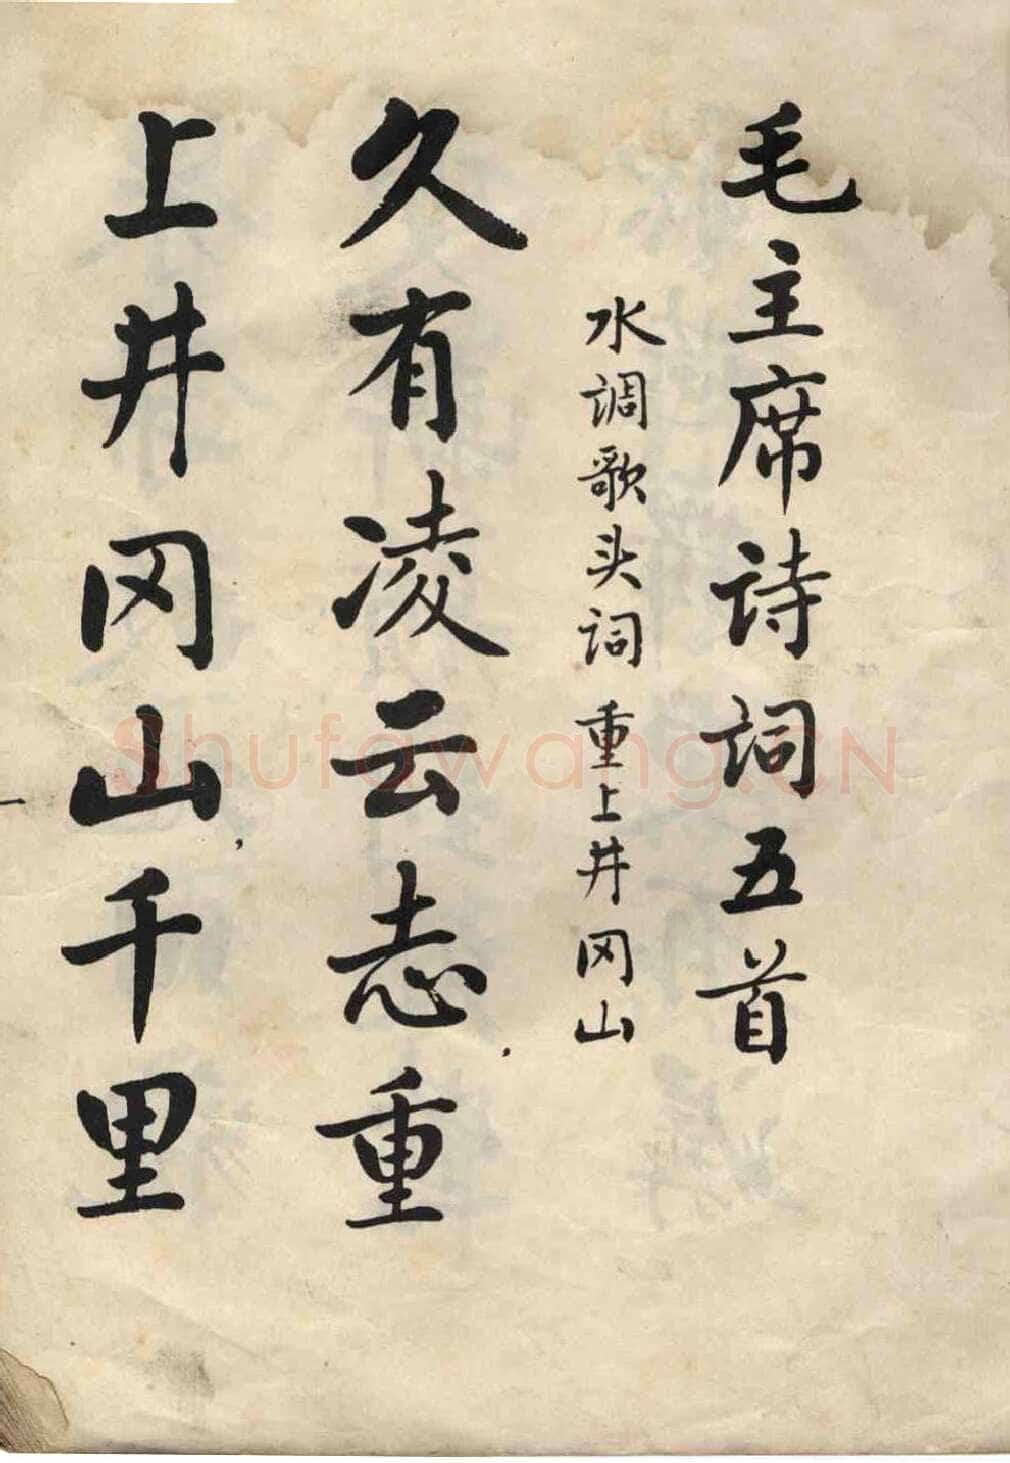 毛主席诗词五首
水调歌头词 重上井冈山
久有凌云志,重
上井冈山,千里
Shufawang.CN